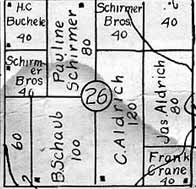 H.C
Buchele
40
Pauline
Schirmer
80
Schirmer
Bros
40
40
Schirm-
er
Bros
40
26
Jas. Aldrich
80
C. Aldrich
120
60
B. Schaub
100
Frank
Crane
40